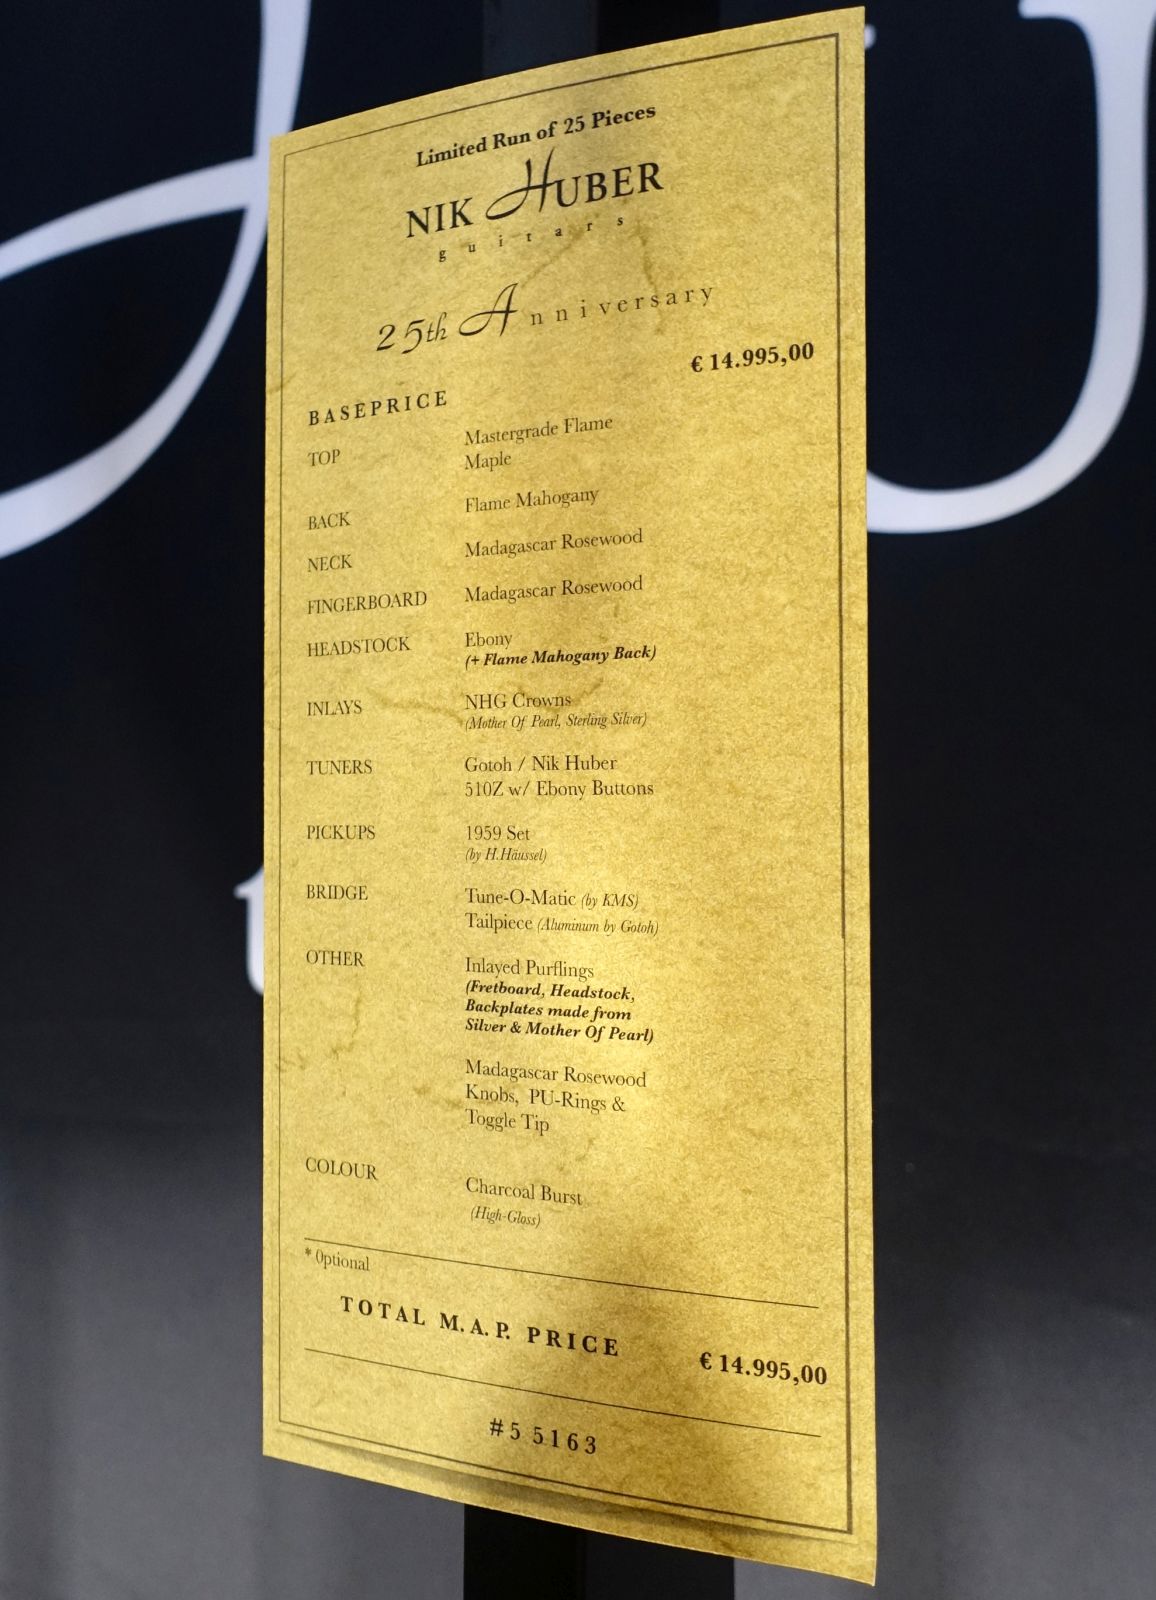 Limited Run of 25 Pieces
NIK HUBER
guitars
25th Anniversary
€ 14.995,00
BASEPRICE
TOP Mastergrade Flame
Maple
BACK Flame Mahogany
NECK Madagascar Rosewood
FINGERBOARD Madagascar Rosewood
HEADSTOCK Ebony
(+ Flame Mahogany Back)
INLAYS NHG Crowns
(Mother Of Pearl, Sterling Silver)
TUNERS Gotoh / Nik Huber
510Z w/ Ebony Buttons
PICKUPS 1959 Set
(by H.Häussel)
BRIDGE Tune-O-Matic (by KMS)
Tailpiece (Aluminum by Gotoh)
OTHER Inlayed Purflings
(Fretboard, Headstock,
Backplates made from
Silver & Mother Of Pearl)
Madagascar Rosewood
Knobs, PU-Rings &
Toggle Tip
COLOUR Charcoal Burst
(High-Gloss)
* Optional
TOTAL M.A.P. PRICE € 14.995,00
#5 5163